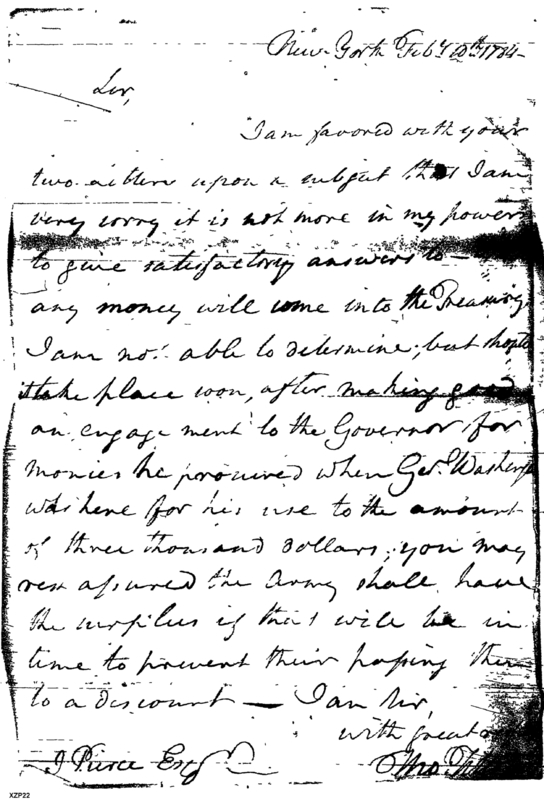 New York Feby 10th 1784
Sir,
I am favored with your
two letters upon a subject that I am
very sorry it is not more in my power
to give satisfactory answers to —
any money will come into the Treasury
I am not able to determine; but hope
it take place soon, after making good
an engagement to the Governor for
monies he procured when Genl. Washing
was here for his use to the amount
of three thousand dollars; you may
rest assured the Army shall have
the surplus if that will be in
time to prevent their passing them
to a discount — I am Sir,
with great
J Pierce Esqr
Tho.
XZP22